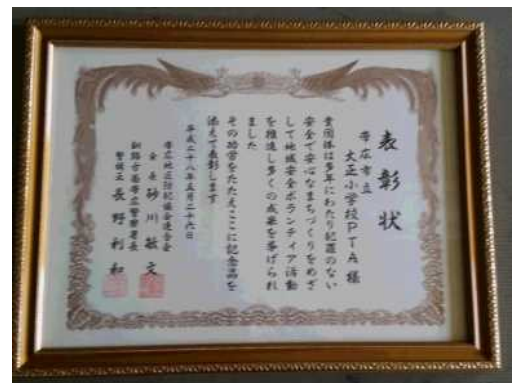 表彰状
帯広市立
大正小学校PTA 様
貴団体は多年にわたり犯罪のない
安全で安心なまちづくりをめざ
して地域安全ボランティア活動
を推進し多くの成果を挙げられ
ました
その功労をたたえここに記念品を
添えて表彰します
平成二十八年五月二十六日
帯広地区防犯協会連合会
会長 砂川敏文
釧路方面帯広警察署長
警視正 長野利和